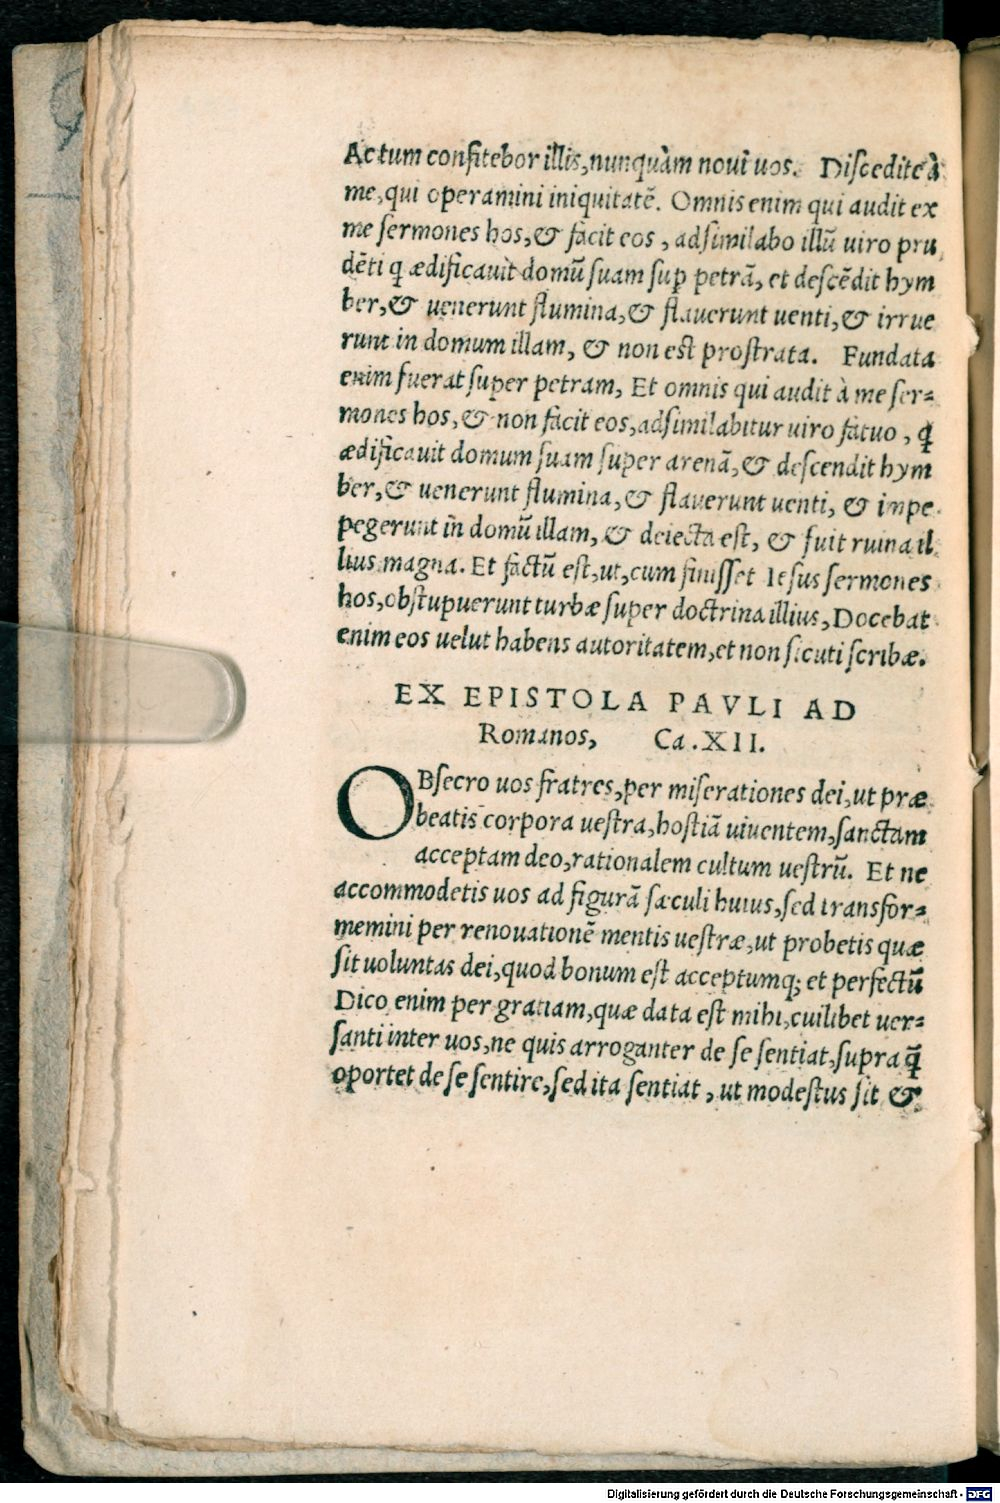 Ac tum confitebor illis, nunquàm noui uos. Discedite à
me, qui operamini iniquitatẽ. Omnis enim qui audit ex
me sermones hos, & facit eos, adsimilabo illũ uiro pru
dẽti q ædificauit domũ suam sup petrã, et descẽdit hym
ber, & uenerunt flumina, & flauerunt uenti, & irrue
runt in domum illam, & non est prostrata. Fundata
enim fuerat super petram, Et omnis qui audit à me ser=
mones hos, & non facit eos, adsimilabitur uiro fatuo, q̃
ædificauit domum suam super arenã, & descendit hym
ber, & uenerunt flumina, & flauerunt uenti, & impe
pegerunt in domũ illam, & deiecta est, & fuit ruina il
lius magna. Et factũ est, ut, cum finisset Iesus sermones
hos, obstupuerunt turbæ super doctrina illius, Docebat
enim eos uelut habens autoritatem, et non sicuti scribæ.
EX EPISTOLA PAVLI AD
Romanos, Ca. XII.
OBsecro uos fratres, per miserationes dei, ut præ
beatis corpora uestra, hostiã uiuentem, sanctam
acceptam deo, rationalem cultum uestrũ. Et ne
accommodetis uos ad figurã sæculi huius, sed transfor=
memini per renouationẽ mentis uestræ, ut probetis quæ
sit uoluntas dei, quod bonum est acceptumq; et perfectũ
Dico enim per gratiam, quæ data est mihi, cuilibet uer=
santi inter uos, ne quis arroganter de se sentiat, supra q̃
oportet de se sentire, sed ita sentiat, ut modestus sit &
Digitalisierung gefördert durch die Deutsche Forschungsgemeinschaft - DFG